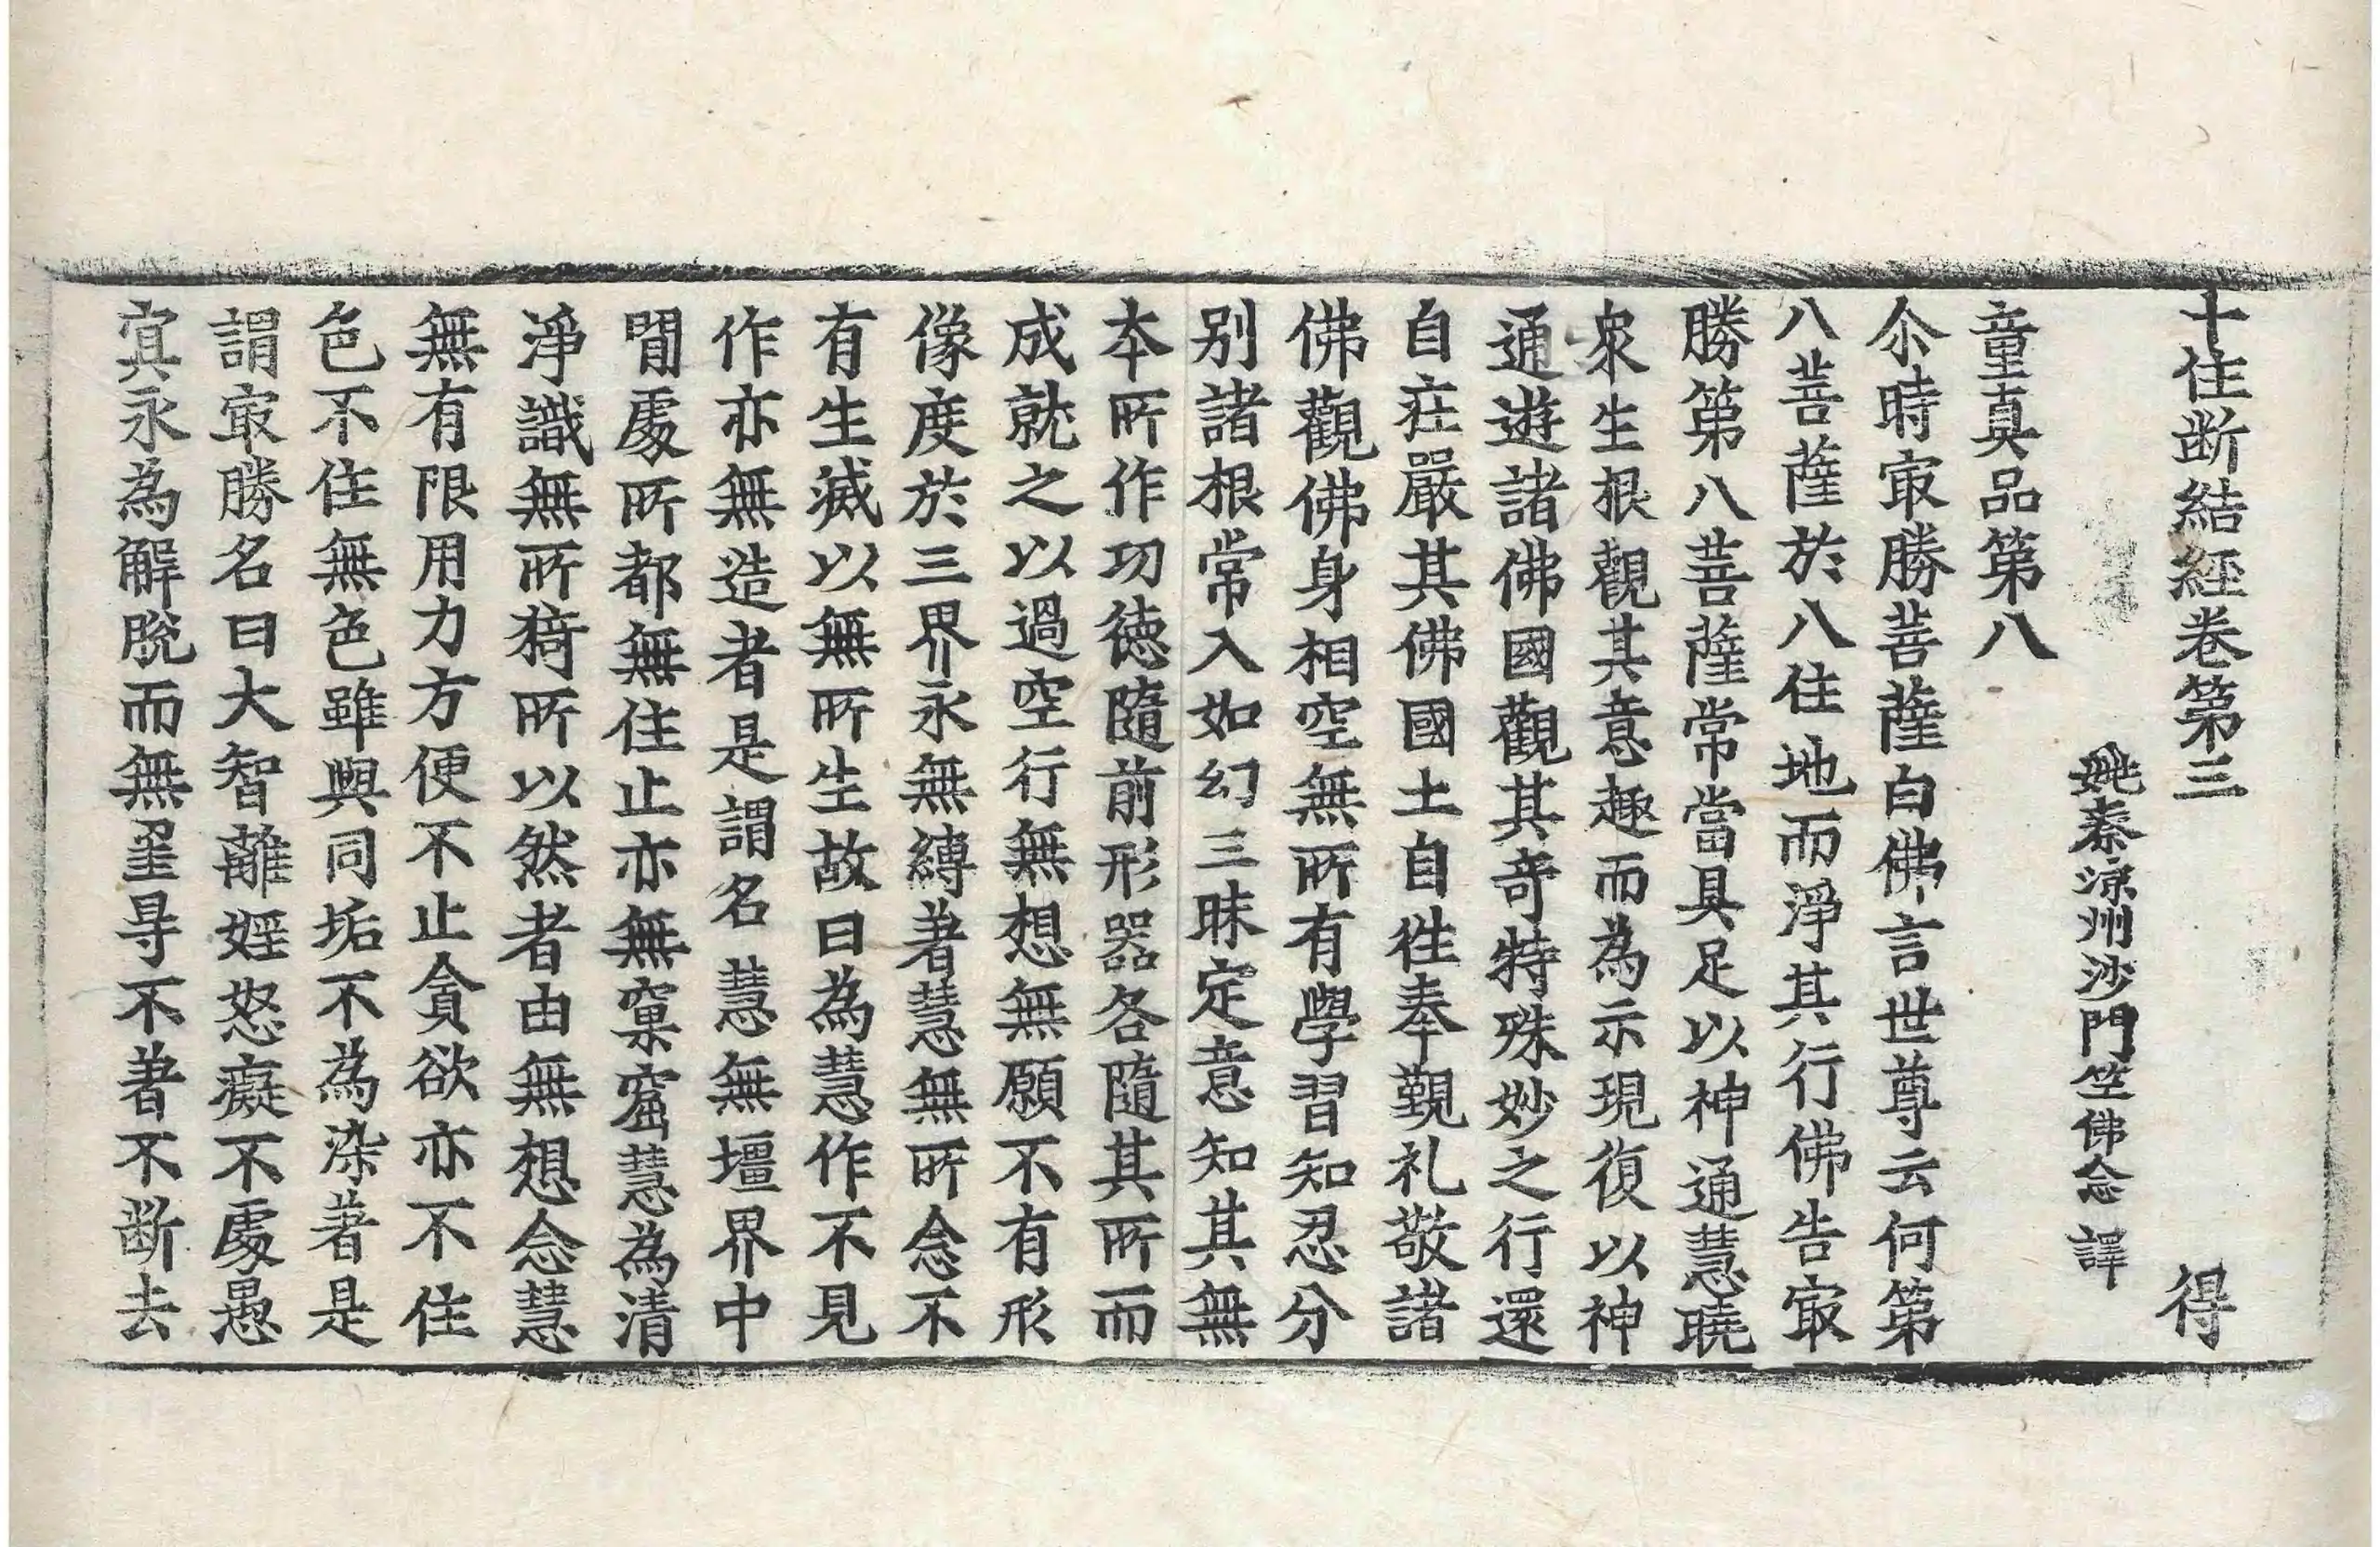 十住断結經卷第三 得
姚秦涼州沙門竺佛念 譯
童真品第八
尒時㝡勝菩薩白佛言世尊云何第
八菩薩於八住地而淨其行佛告㝡
勝第八菩薩常當具足以神通慧曉
衆生根觀其意趣而為示現復以神
通遊諸佛國觀其奇特殊妙之行還
自莊嚴其佛國土自徃奉覲礼敬諸
佛觀佛身相空無所有學習知忍分
别諸根常入如幻三昧定意知其無
本所作功德隨前形器各隨其所而
成就之以過空行無想無願不有形
像度於三界永無縛著慧無所念不
有生滅以無所生故曰為慧作不見
作亦無造者是謂名慧無壃界中
閒處所都無住止亦無窠窟慧為清
淨識無所猗所以然者由無想念慧
無有限用力方便不止貪欲亦不住
色不住無色雖與同垢不為染著是
謂㝡勝名曰大智離婬怒癡不處愚
冥永為解脫而無罣㝵不著不断去